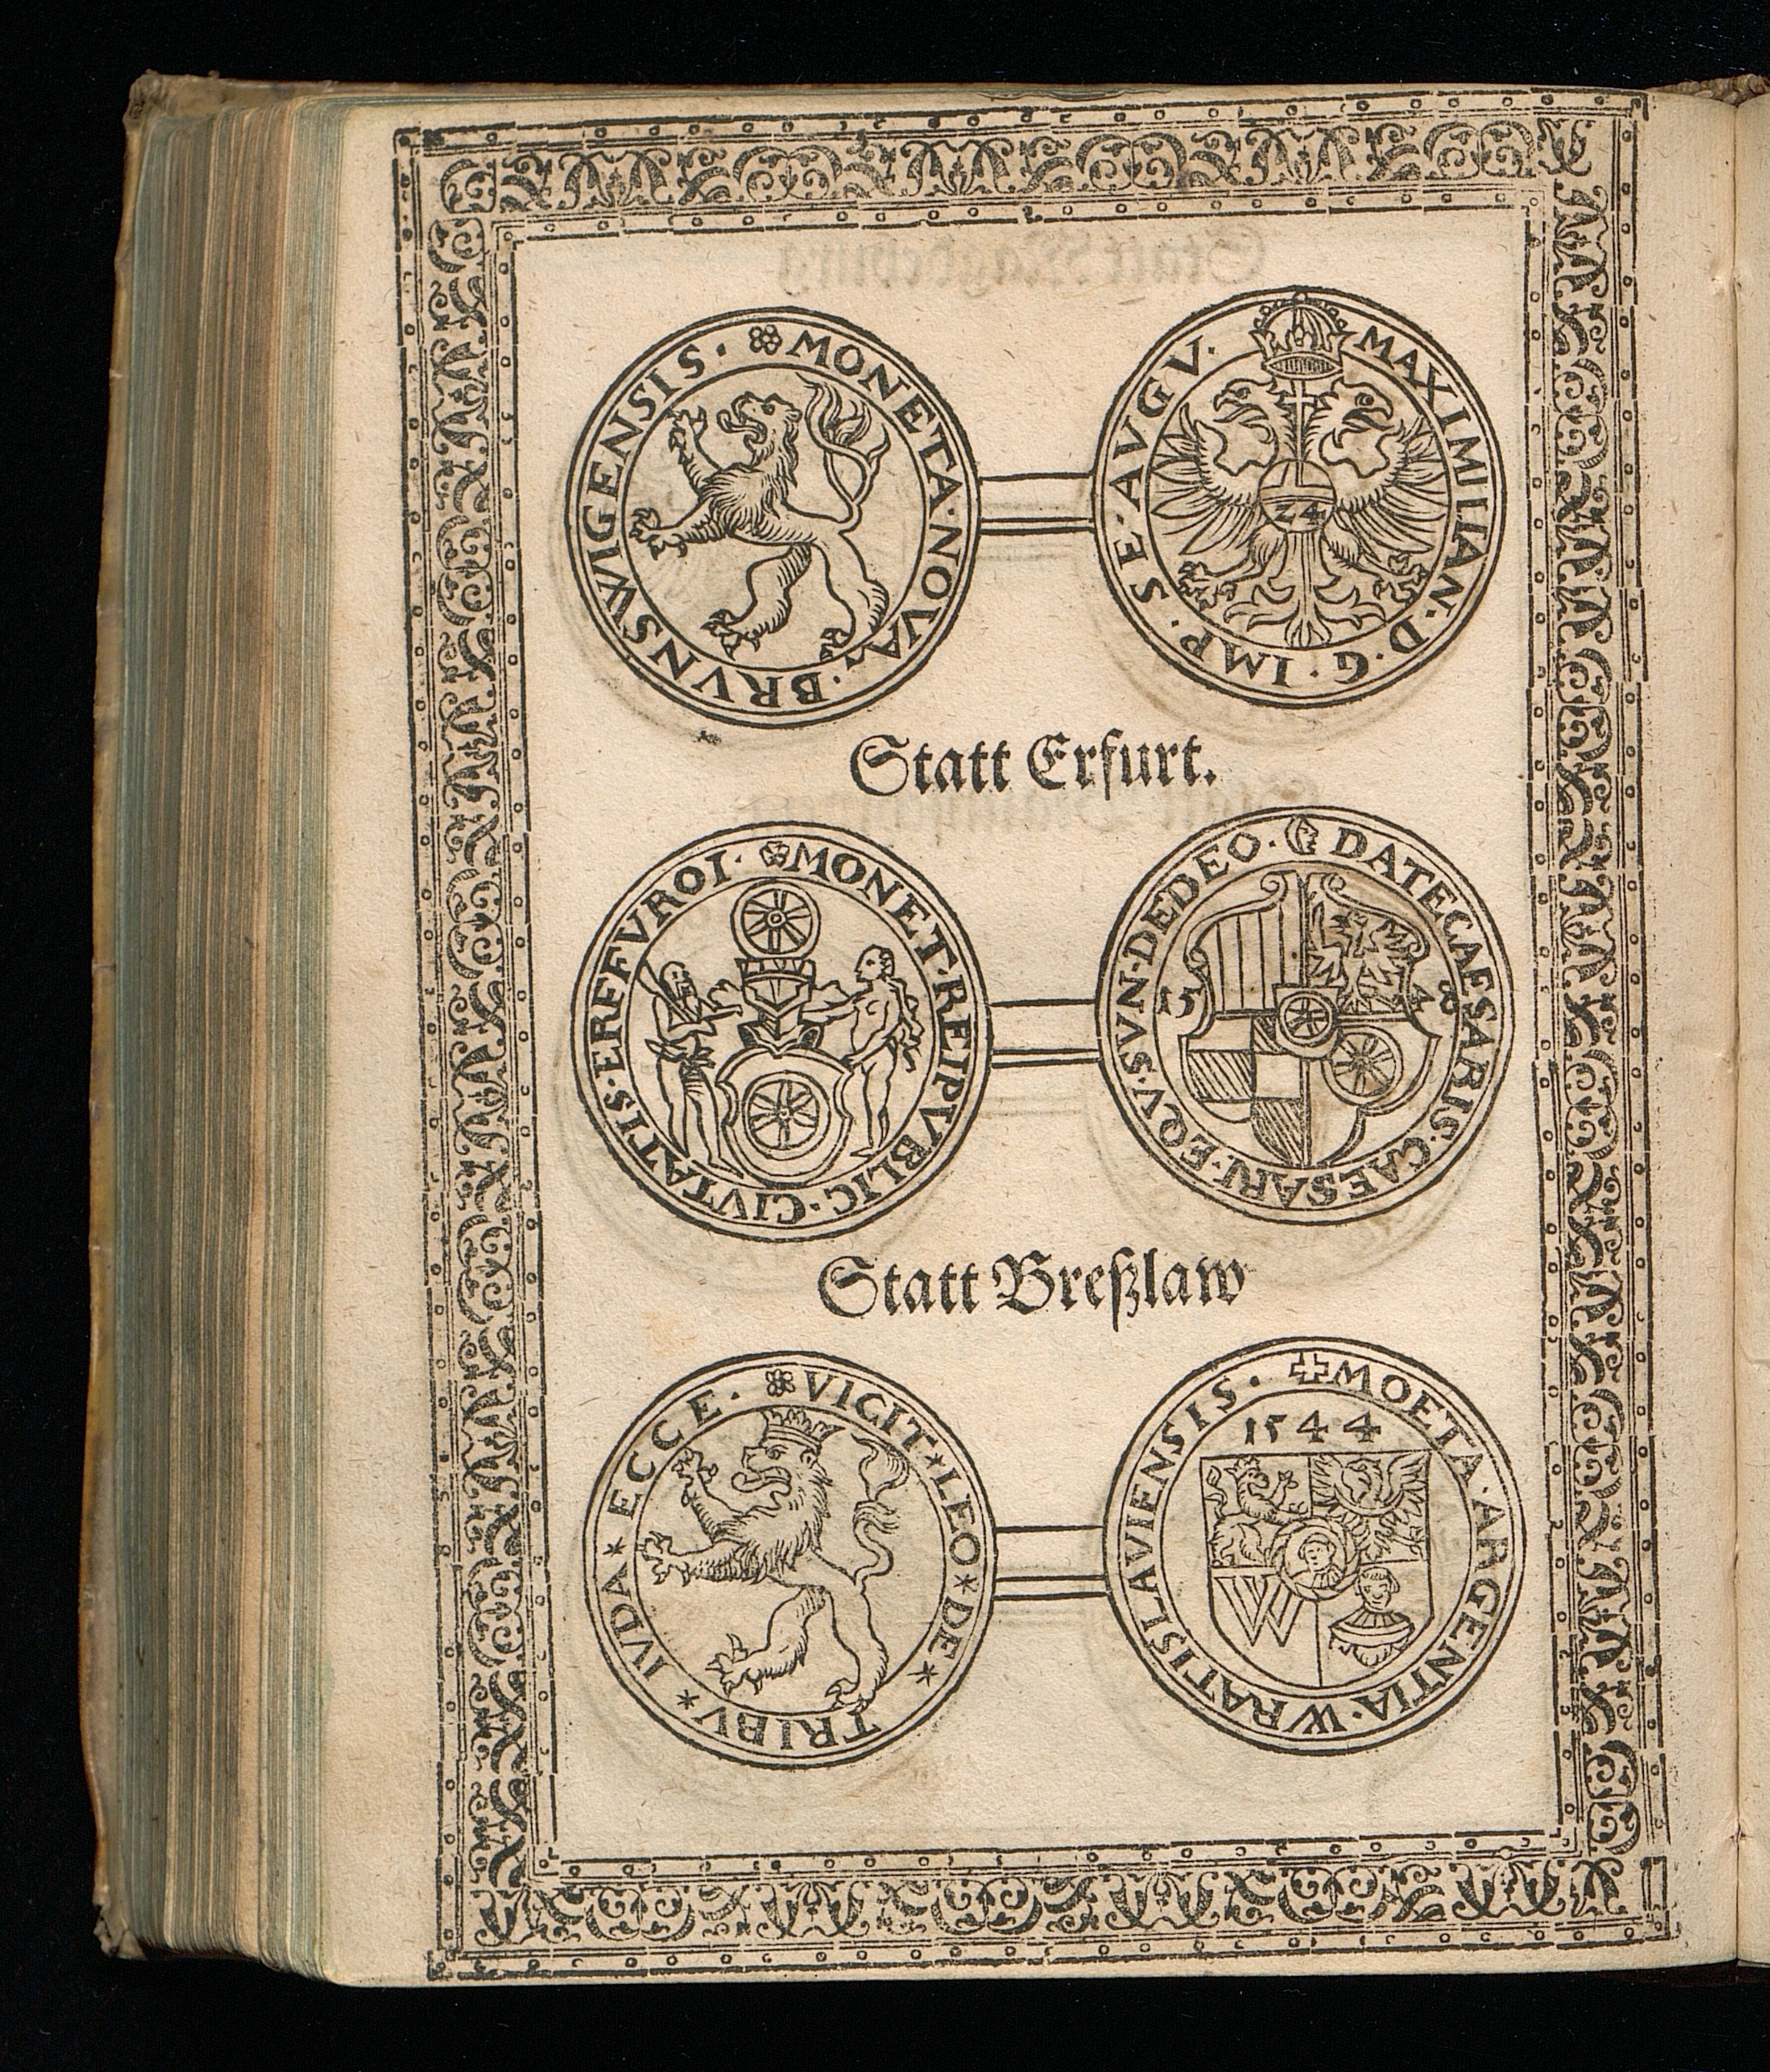 MONETA·NOVA·BRVNSWIGENSIS·
MAXIMILIAN·D·G·IMP·SE·AVGV·
24
Statt Erfurt.
MONET·REIPVBLIC·CIVTATIS·ERFFVROI·
DATECAESARIS·CAESARI·EQV·SVN·DEDEO·
15 48
Statt Breßlaw
VICIT*LEO*DE*TRIBV*IVDA*ECCE·
MOETA·ARGENTIA·WRATISLAVIENSIS·
1544
W